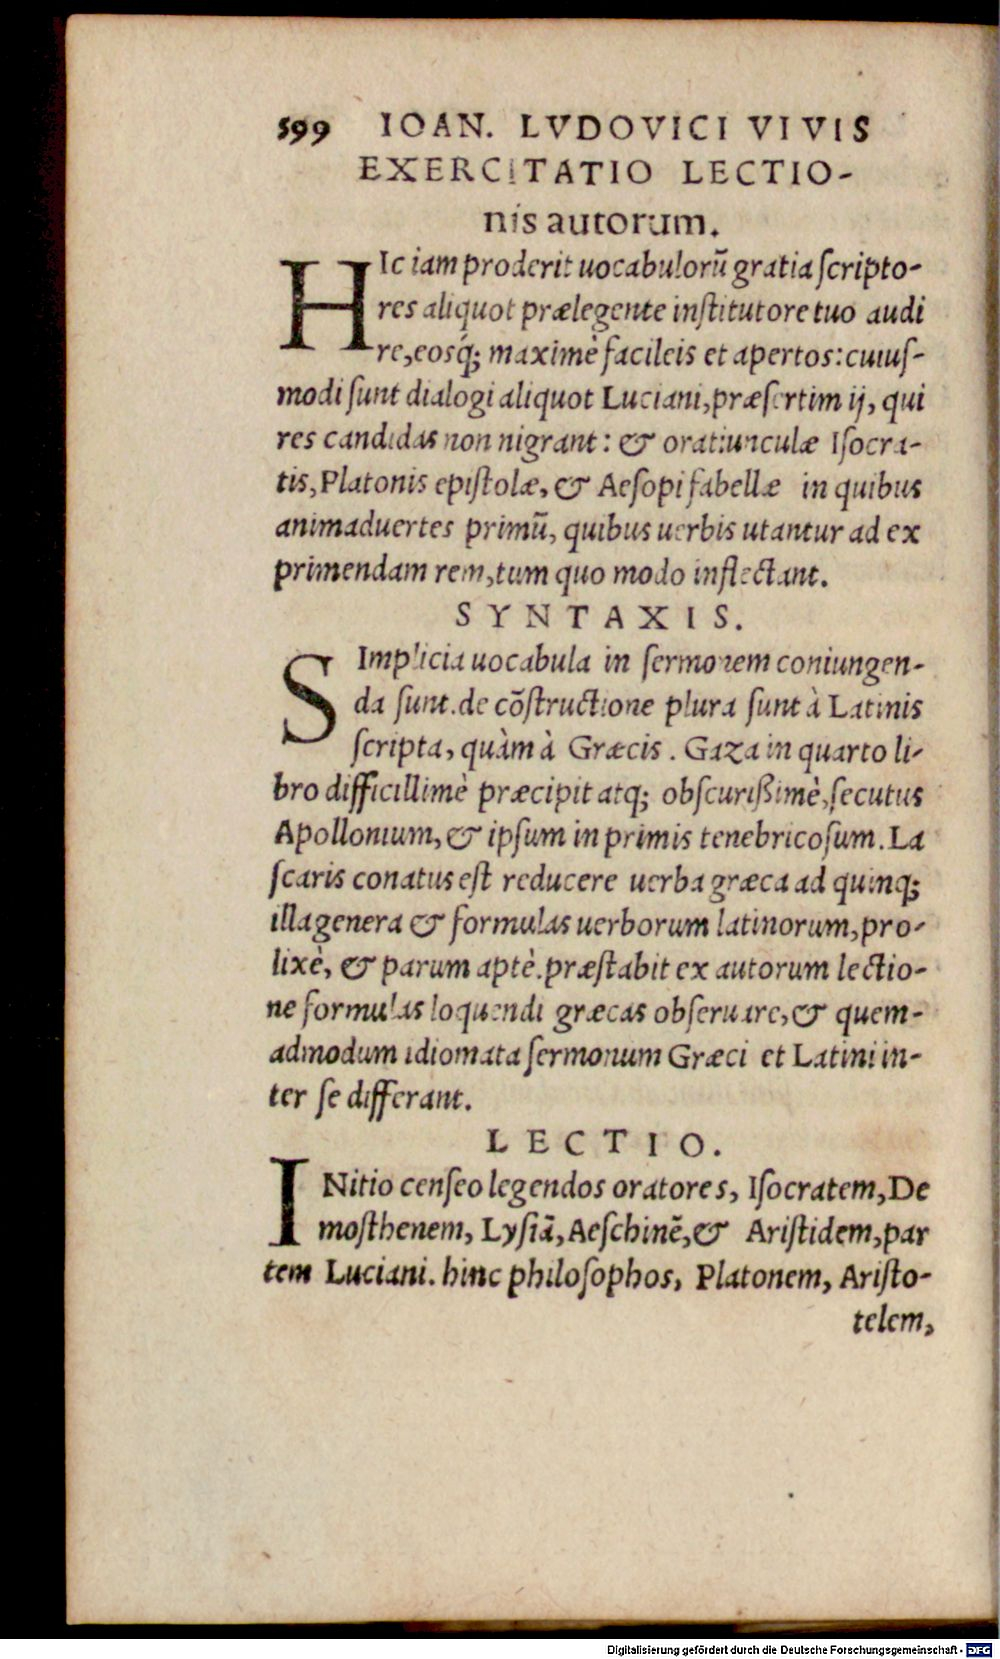 599 IOAN. LVDOVICI VIVIS
EXERCITATIO LECTIO-
nis autorum.
HIc iam proderit uocabulorũ gratia ſcripto-
res aliquot prælegente inſtitutore tuo audi
re, eosq́; maximè facileis et apertos: cuiuſ-
modi ſunt dialogi aliquot Luciani, præſertim ij, qui
res candidas non nigrant: & oratiunculæ Iſocra-
tis, Platonis epiſtolæ, & Aeſopi fabellæ in quibus
animaduertes primũ, quibus uerbis utantur ad ex
primendam rem, tum quo modo inflectant.
SYNTAXIS.
SImplicia uocabula in ſermonem coniungen-
da ſunt. de cõſtructione plura ſunt à Latinis
ſcripta, quàm à Græcis. Gaza in quarto li-
bro difficillimè præcipit atq; obſcurißimè, ſecutus
Apollonium, & ipſum in primis tenebricoſum. La
ſcaris conatus eſt reducere uerba græca ad quinq;
illa genera & formulas uerborum latinorum, pro-
lixè, & parum aptè. præſtabit ex autorum lectio-
ne formulas loquendi græcas obſeruare, & quem-
admodum idiomata ſermonum Græci et Latini in-
ter ſe differant.
LECTIO.
INitio cenſeo legendos oratores, Iſocratem, De
moſthenem, Lyſiã, Aeſchinẽ, & Ariſtidem, par
tem Luciani. hinc philoſophos, Platonem, Ariſto-
telem,
Digitalisierung gefördert durch die Deutsche Forschungsgemeinschaft - DFG